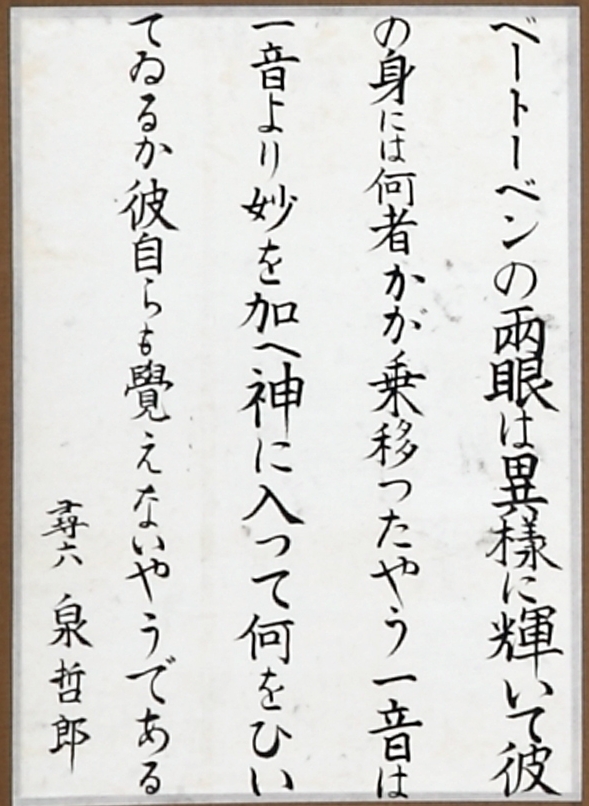 ベートーベンの兩眼は異様に輝いて彼
の身には何者かが乗移つたやう一音は
一音より妙を加へ神に入つて何をひい
てゐるか彼自らも覺えないやうである
尋六 泉哲郎